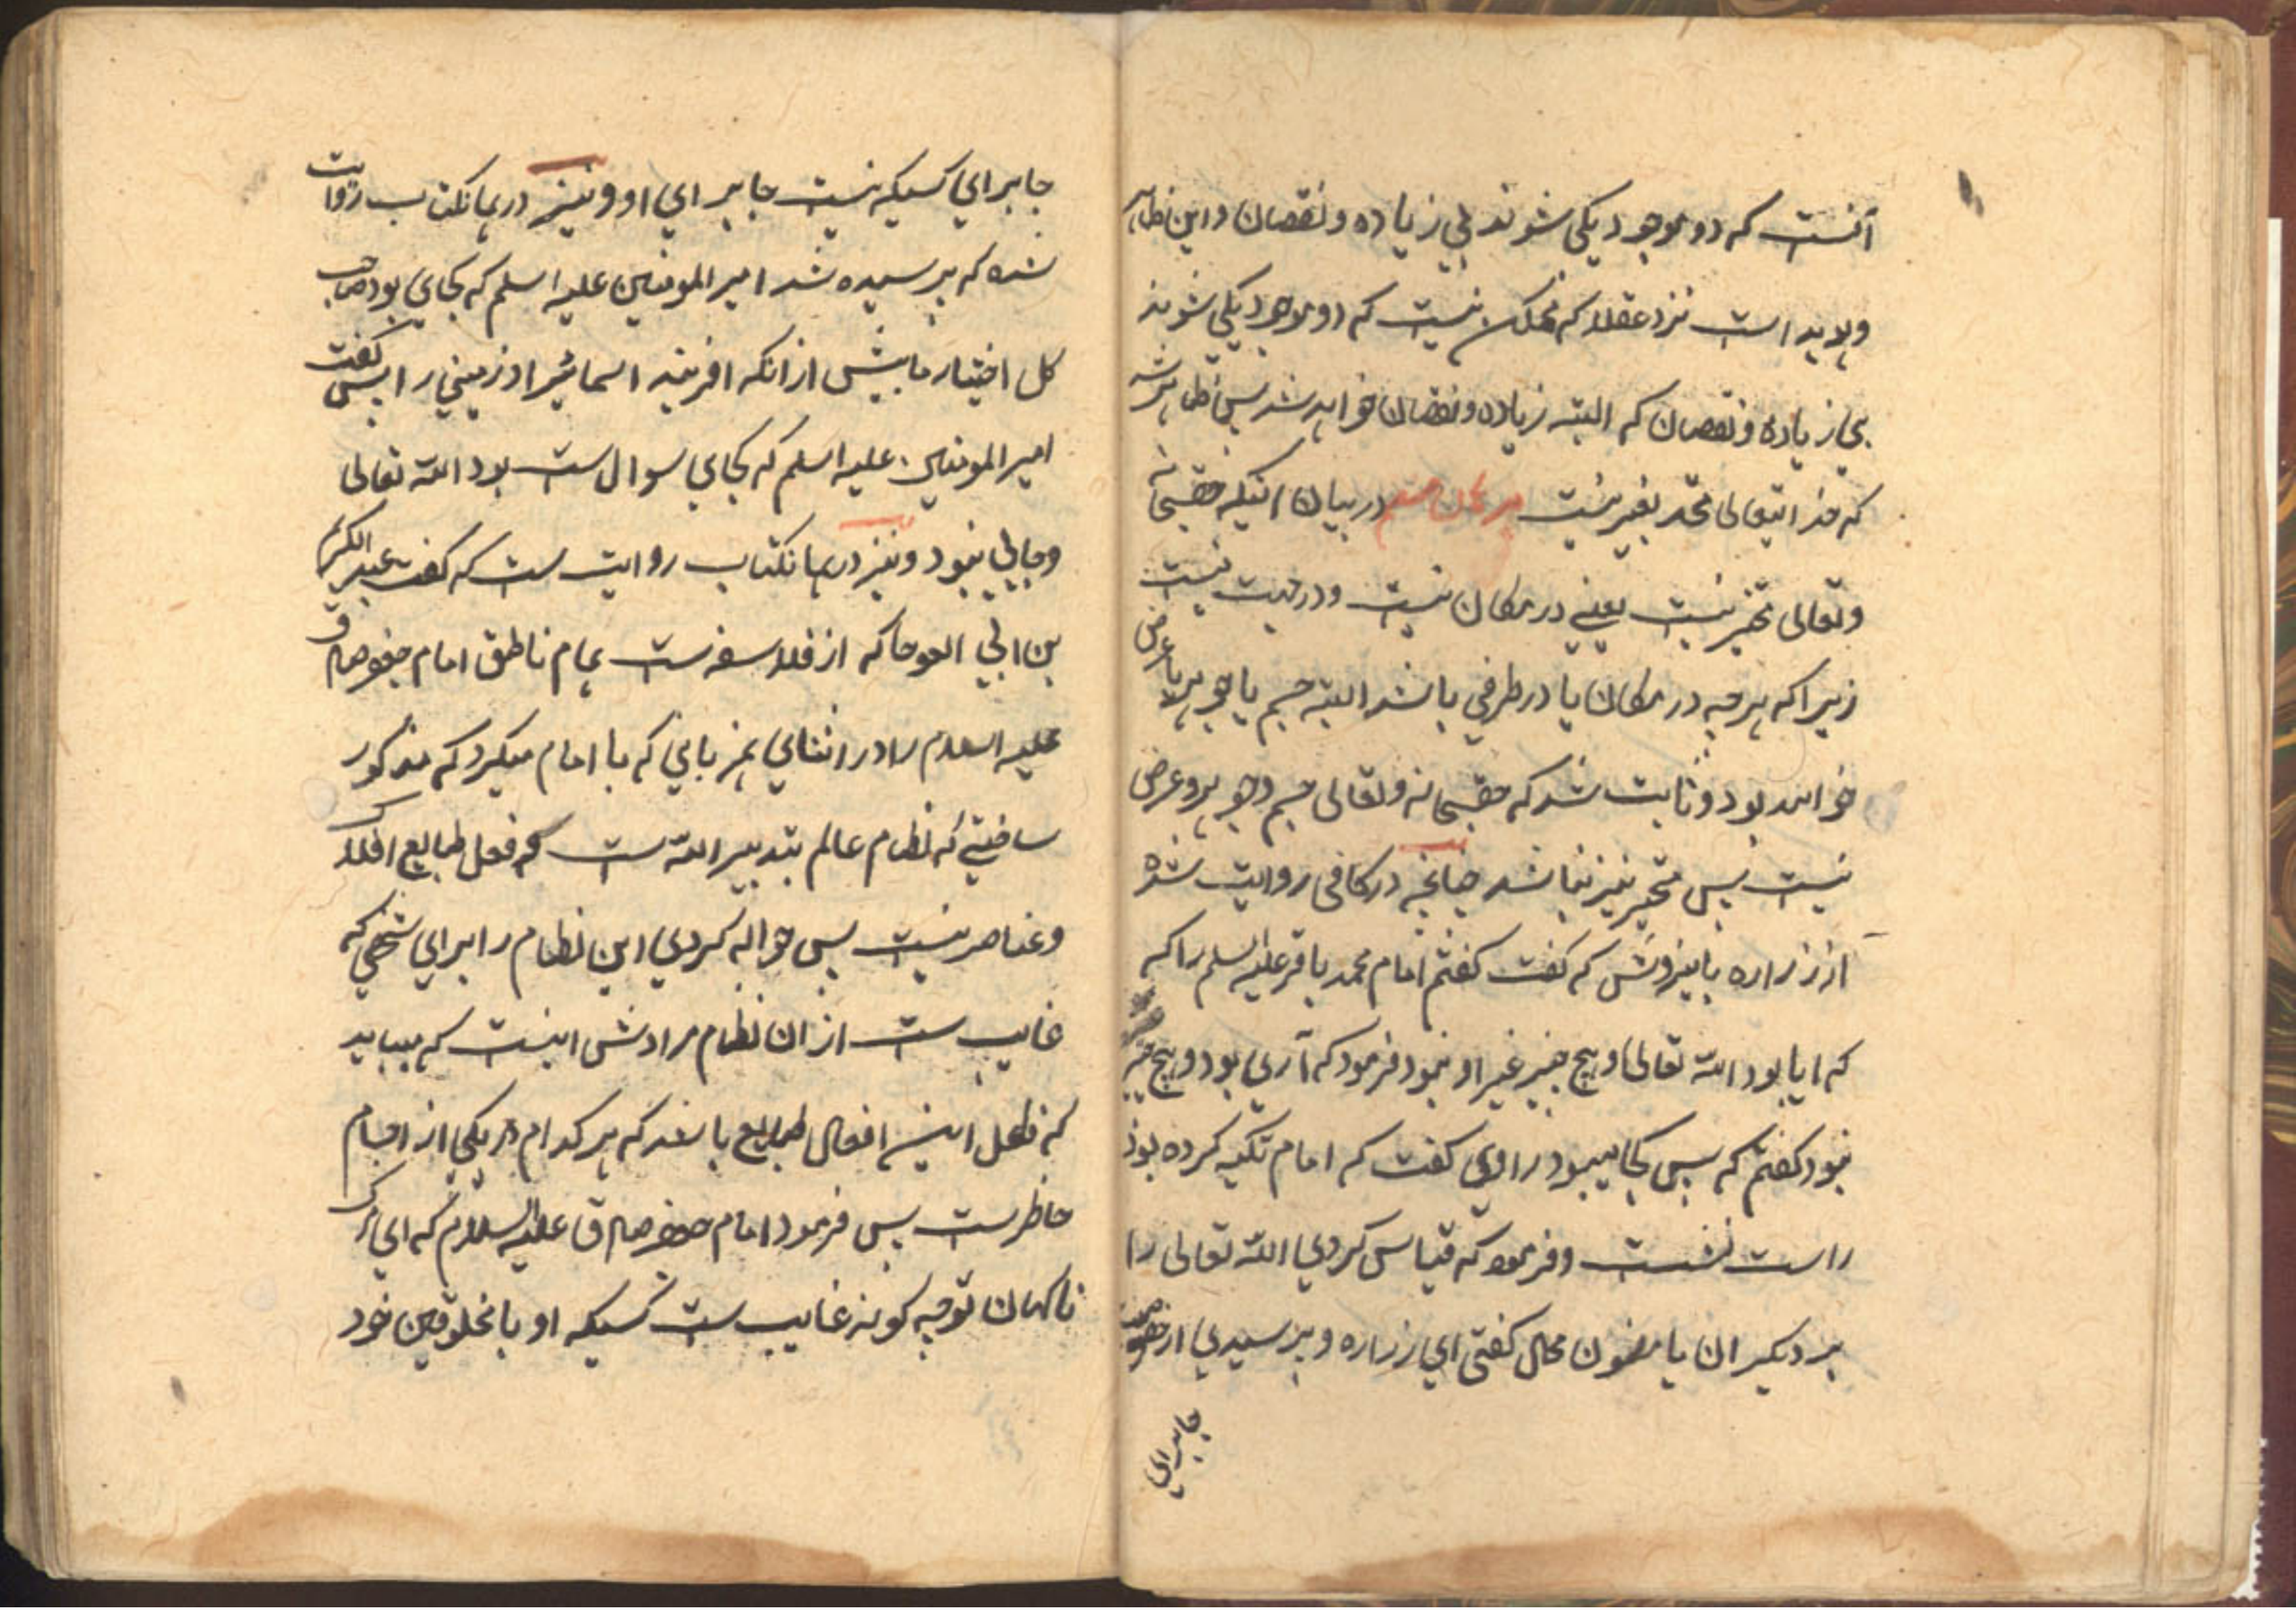 آنست که دو موجود یکی شوند بی زیاده و نقصان و این ظاهر
و هویداست نزد عقلا که ممکن نیست که دو موجود یکی شوند
بی زیاده و نقصان که البته زیاده و نقصان خواهد شد پس ظاهر شد
که خدایتعالی متحد بغیر نیست در بیان آنکه حقسبحانه
و تعالی متحیز نیست یعنی در مکان نیست و در جهت نیست
زیرا که هر چه در مکان یا در طرفی باشد البته جسم یا جوهر یا عرض
خواهد بود و ثابت شد که حقسبحانه و تعالی جسم و جوهر و عرض
نیست پس متحیز نیز نباشد چنانچه در کافی روایت شده
از زراره باینروش که گفت گفتم امام محمد باقر علیه السلم را که
که ایا بود الله تعالی و هیچ چیز غیر او نبود فرمود که آری بود و هیچ چیز
نبود گفتم که پس کجا میبود راوی گفت که امام تکیه کرده بود
راست نشست و فرمود که قیاس کردی الله تعالی را
بر دیگران یا مضمون محال گفتی ای زراره و پرسیدی از
جا برای
جا برای کسیکه نیست جا برای او و نیز در همانکتاب روایت
شده که پرسیده شد امیر المومنین علیه السلم که کجای بود صاحب
کل اختیار ما پیش از انکه افریند اسمانی را و زمینی را پس گفت
امیر المومنین علیه السلم که کجای سوال ست بود الله تعالی
و جایی نبود و نیز در همانکتاب روایت ست که گفت عبد الکریم
بن ابی العوجا که از فلاسفه ست بامام ناطق امام جعفر صادق
علیه السلام را در اثنای همزبانی که با امام میکرد که مذکور
ساختی که نظام عالم بتدبیر الله ست که فعل طبایع افلاک
و عناصر نیست پس حواله کردی این نظام را برای شخصی که
غایب ست از ان نظام مرادش اینست که میباید
که فاعل این افعال طبایع باشد که هر کدام در یکی از اجسام
حاظرست پس فرمود امام جعفر صادق علیه السلام که ای مرگ
ناگهان تو چه گونه غایب ست کسیکه او با مخلوقین خود